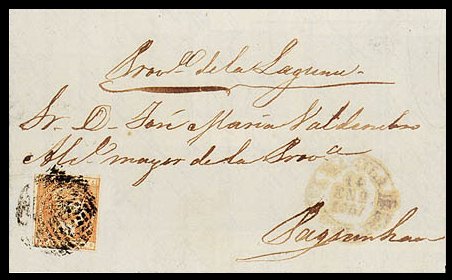 Prov.ª de la Laguna
Sr. D. José Maria Valdenebro
Alc.e mayor de la Prov.ª
Pagsanhan